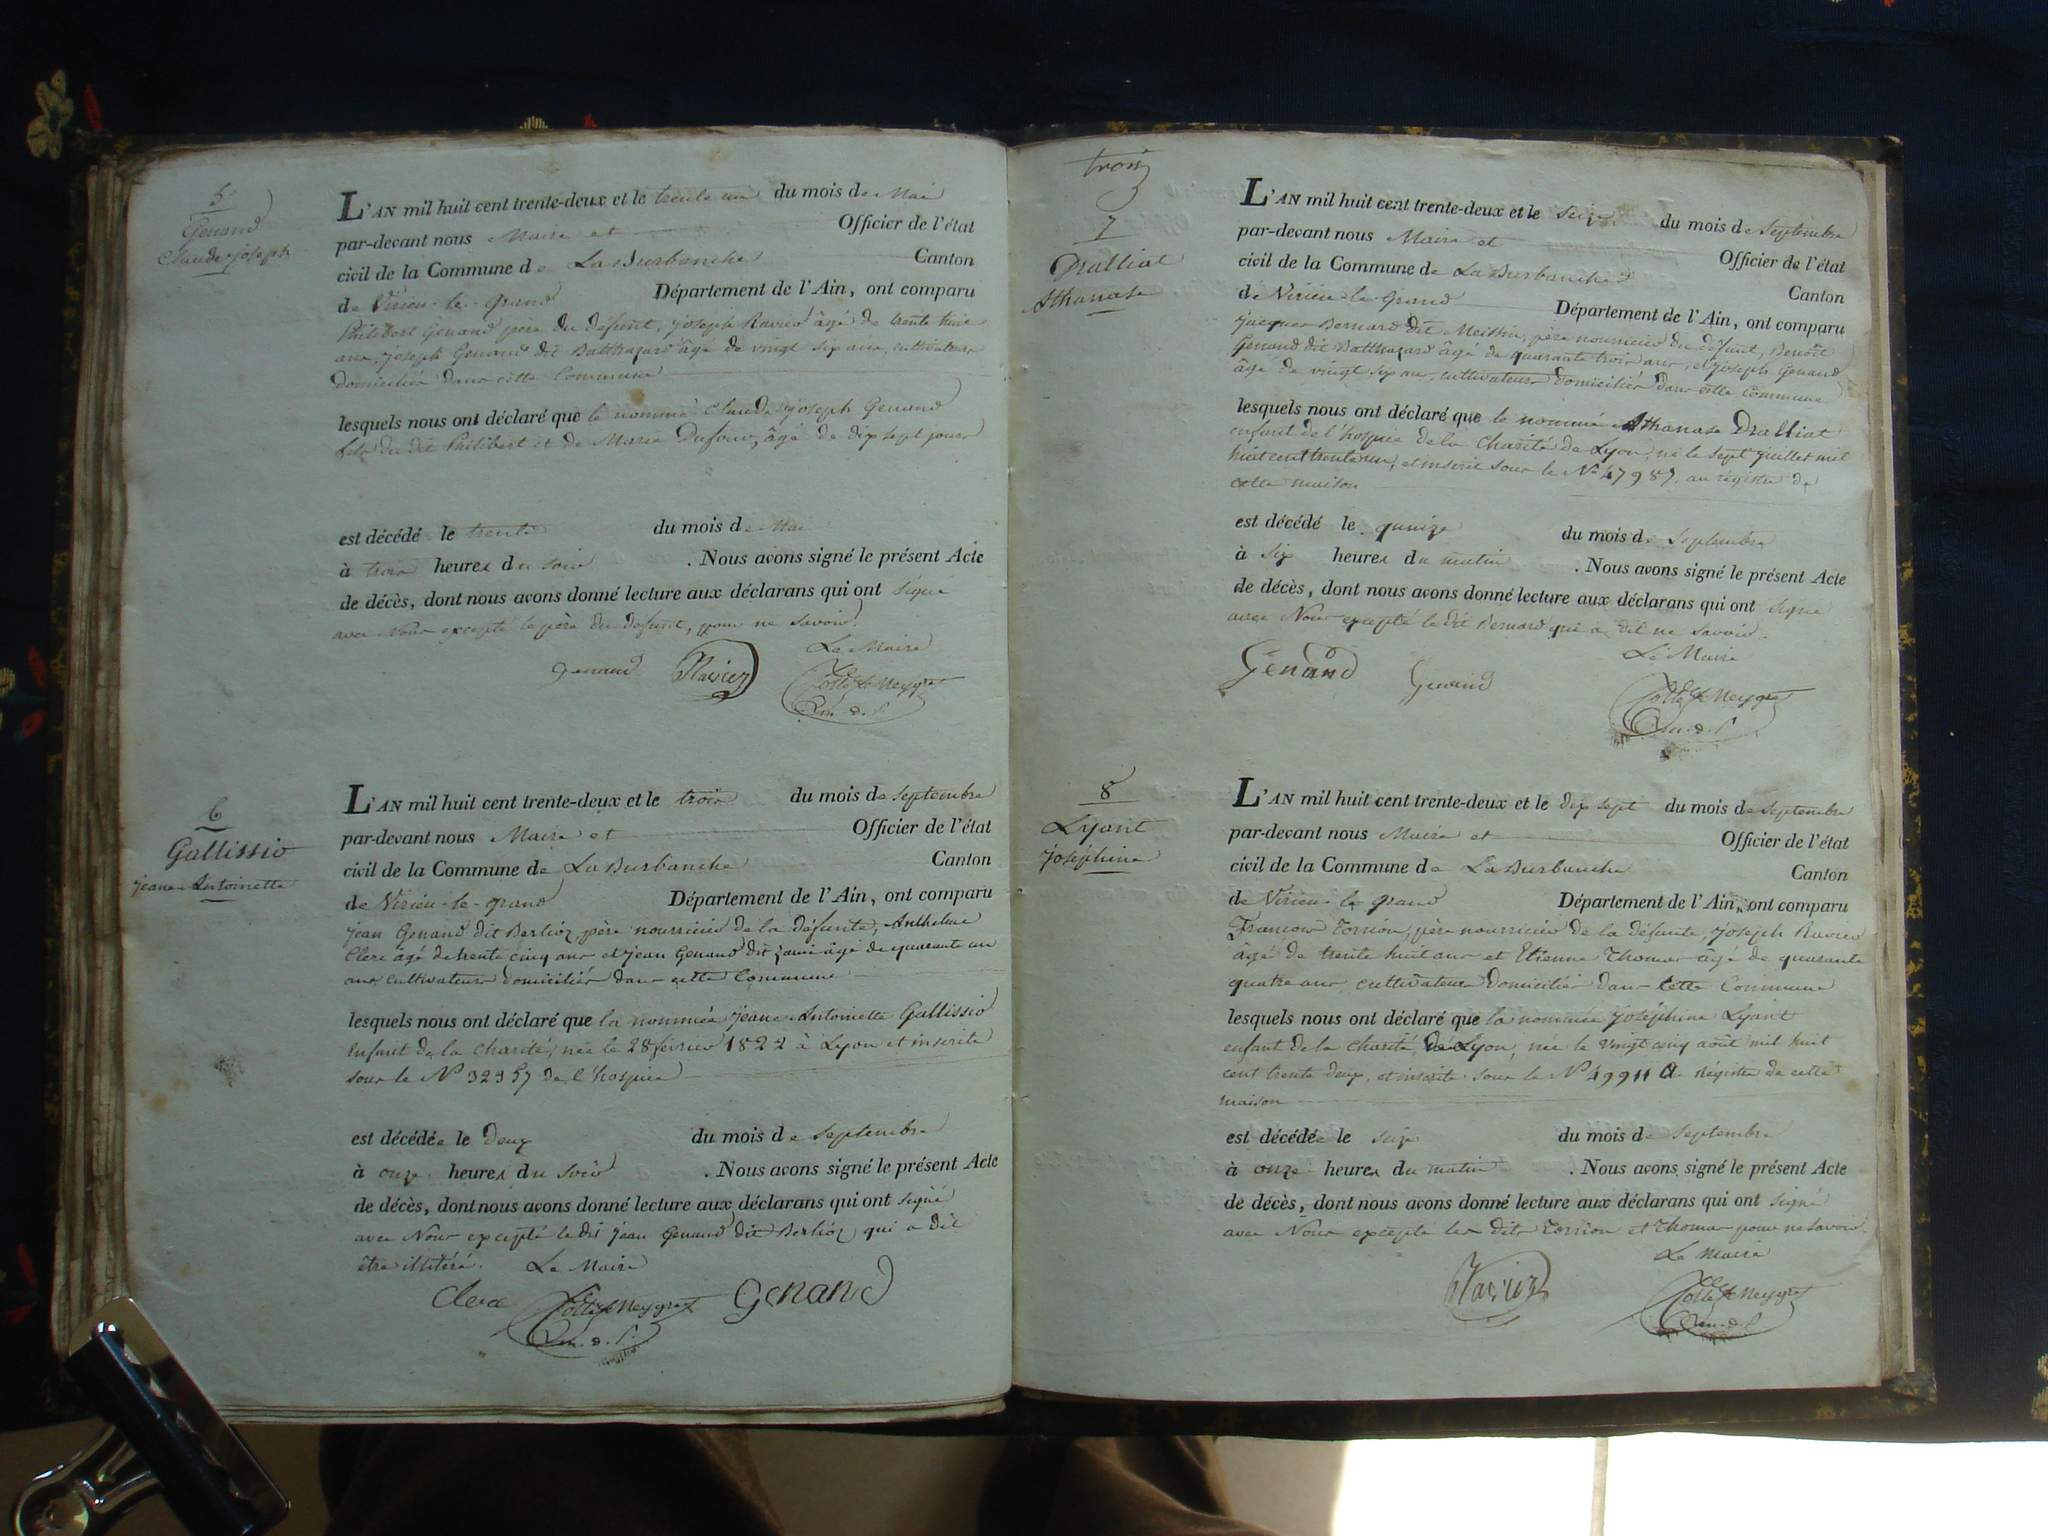 5
Genand
Claude joseph
L'AN mil huit cent trente-deux et le trente un du mois de Mai
par-devant nous Maire et Officier de l'état
civil de la Commune de La Burbanche Canton
de Virieu-le-grand Département de l'Ain, ont comparu
Philibert Genand père du défunt, joseph Ravier âgé de trente huit
ans, joseph Genand dit Balthazard âgé de vingt six ans, cultivateurs
domiciliés dans cette Commune
lesquels nous ont déclaré que le nommé Claude joseph Genand
fils du dit Philibert et de Marie Dufour, âgé de dix sept jours
est décédé le trente du mois de Mai
à trois heures du soir . Nous avons signé le présent Acte
de décès, dont nous avons donné lecture aux déclarans qui ont signé
avec Nous excepté le père du défunt, pour ne savoir.
Le Maire
genand Ravier
6
Gallissio
jeane Antoinette
L'AN mil huit cent trente-deux et le trois du mois de septembre
par-devant nous Maire et Officier de l'état
civil de la Commune de La Burbanche Canton
de Virieu-le-grand Département de l'Ain, ont comparu
jean Genand dit Berlioz, père nourricier de la défunte, Anthelme
Clerc âgé de trente cinq ans et jean Genand dit âgé de quarante un
ans cultivateurs domiciliés dans cette Commune
lesquels nous ont déclaré que la nommée jeane Antoinette Gallissio
enfant de la charité, née le 28 février 1822 à Lyon et inscrite
sous le N° 32357 de l'hospice
est décédée le deux du mois de septembre
à onze heures du soir . Nous avons signé le présent Acte
de décès, dont nous avons donné lecture aux déclarans qui ont signé
avec Nous excepté le dit jean Genand dit Berlioz qui a dit
être illitéré. Le Maire
Clerc Genand
trois
7
Dralliat
Athanase
L'AN mil huit cent trente-deux et le seize du mois de septembre
par-devant nous Maire et Officier de l'état
civil de la Commune de La Burbanche Canton
de Virieu-le-Grand Département de l'Ain, ont comparu
jacques Bernard dit père nourricier du défunt, Benoît
Genand dit Balthazard âgé de quarante trois ans, et joseph Genand
âgé de vingt six ans, cultivateurs domiciliés dans cette Commune
lesquels nous ont déclaré que le nommé Athanase Dralliat
enfant de l'hospice de la Charité de Lyon, né le sept juillet mil
huit cent trente un, et inscrit sous le N° 47987 au régistre de
cette maison
est décédé le quinze du mois de septembre
à six heures du matin . Nous avons signé le présent Acte
de décès, dont nous avons donné lecture aux déclarans qui ont signé
avec Nous excepté le dit Bernard qui a dit ne savoir.
Le Maire
Genand Genand
8
Lyant
joséphine
L'AN mil huit cent trente-deux et le dix sept du mois de septembre
par-devant nous Maire et Officier de l'état
civil de la Commune de La Burbanche Canton
de Virieu-le grand Département de l'Ain, ont comparu
François Torrion, père nourricier de la défunte, joseph Ravier
âgé de trente huit ans et Etienne Thomas âgé de quarante
quatre ans, cultivateurs domiciliés dans cette Commune
lesquels nous ont déclaré que la nommée joséphine Lyant
enfant de la charité de Lyon, née le vingt cinq août mil huit
cent trente deux, et inscrite sous le N° 49911 régistre de cette
maison
est décédée le seize du mois de septembre
à onze heures du matin . Nous avons signé le présent Acte
de décès, dont nous avons donné lecture aux déclarans qui ont signé
avec Nous excepté les dits Torrion et Thomas pour ne savoir.
Le Maire
Ravier